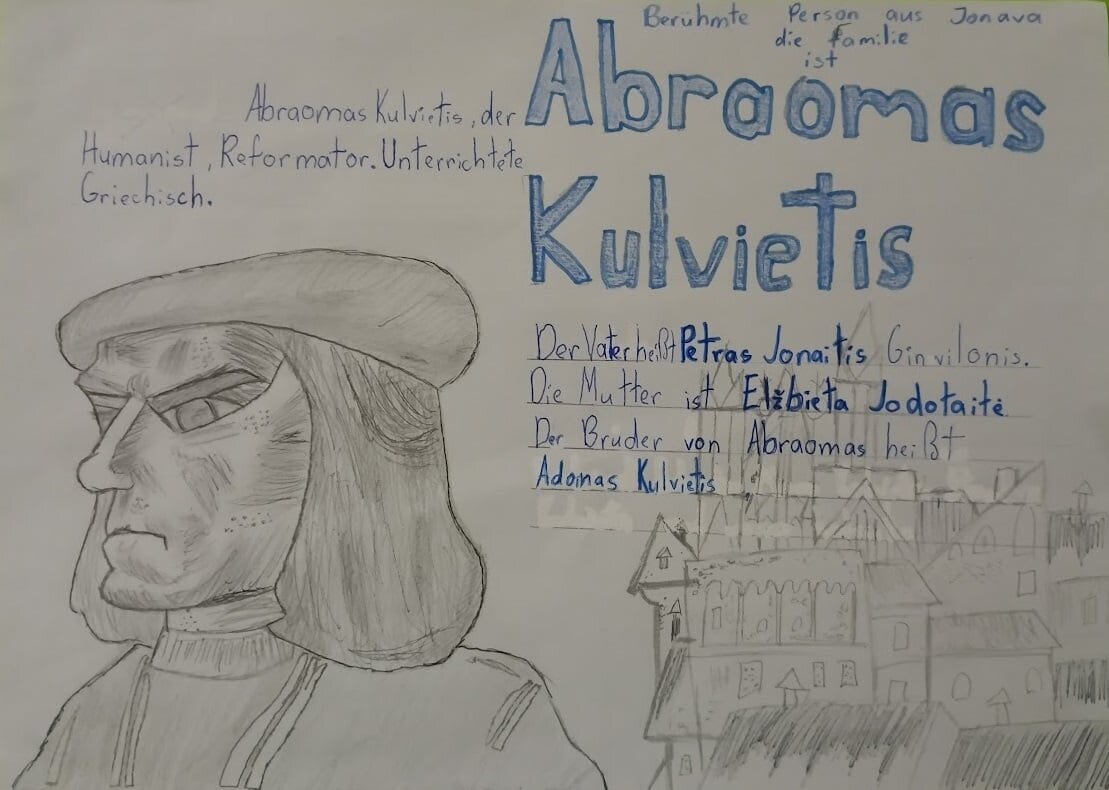 Berühmte Person aus Jonava
die familie
ist
Abraomas
Kulvietis
Abraomas Kulvietis, der
Humanist, Reformator. Unterrichtete
Griechisch.
Der Vater heißt Petras Jonaitis Ginvilonis.
Die Mutter ist Elžbieta Jodotaitė
Der Bruder von Abraomas heißt
Adomas Kulvietis